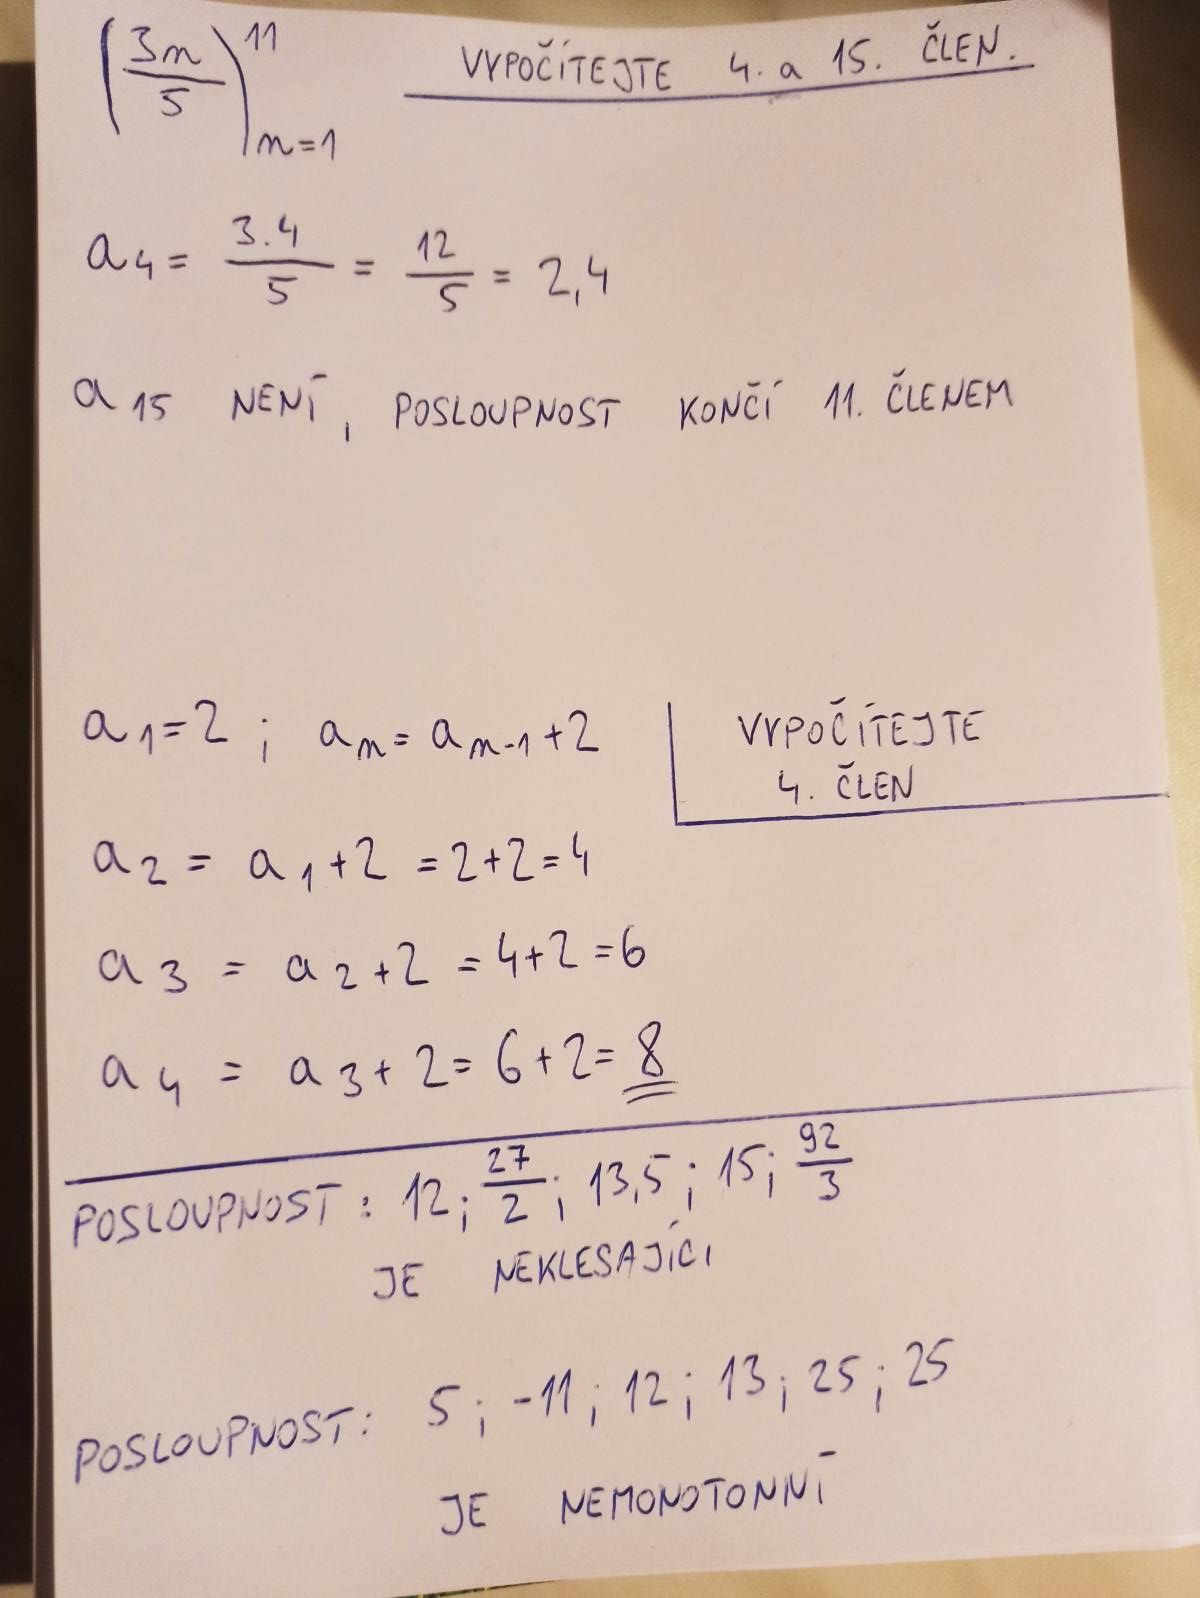 (3n/5)^11_n=1 VYPOČÍTEJTE 4. a 15. ČLEN.
a4 = 3.4/5 = 12/5 = 2,4
a15 NENÍ, POSLOUPNOST KONČÍ 11. ČLENEM
a1=2 ; an = an-1+2 VYPOČÍTEJTE
4. ČLEN
a2 = a1+2 = 2+2=4
a3 = a2+2 = 4+2=6
a4 = a3+2= 6+2= 8
POSLOUPNOST: 12; 27/2; 13,5; 15; 92/3
JE NEKLESAJÍCÍ
POSLOUPNOST: 5; -11; 12; 13; 25; 25
JE NEMONOTONNÍ